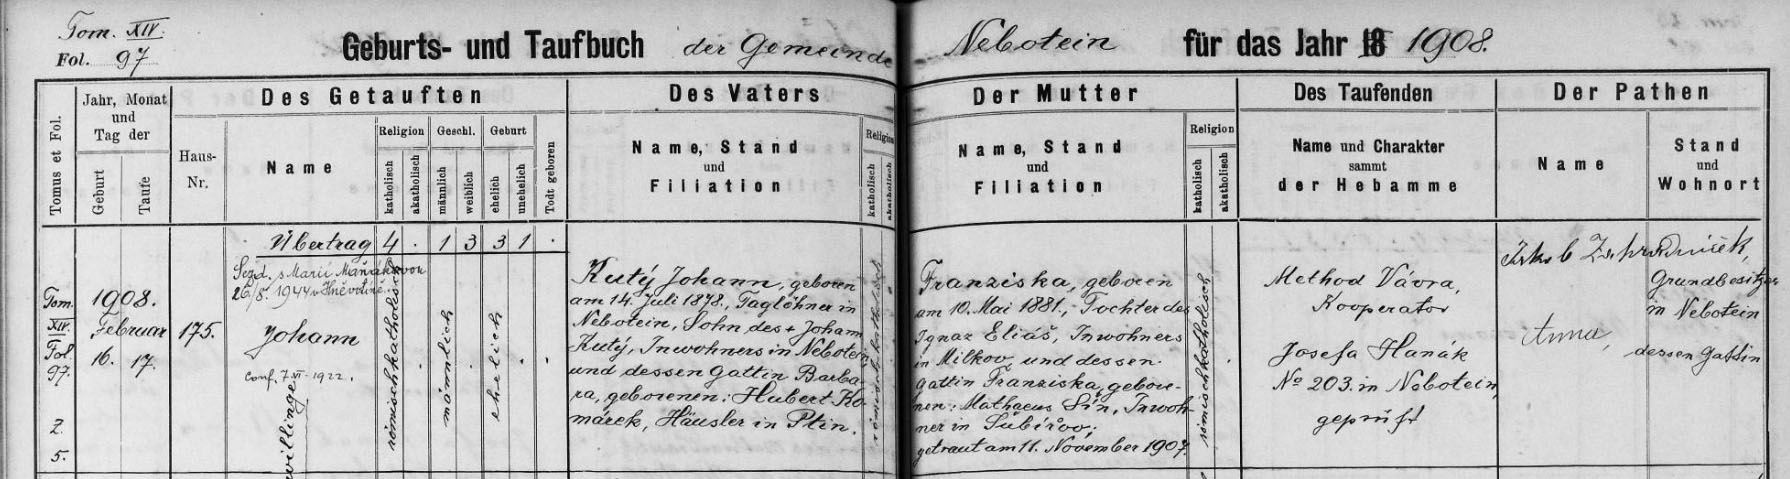 Tom. XIV.
Fol. 97
Geburts- und Taufbuch der Gemeinde Nebotein für das Jahr 18 1908.
Tomus et Fol.
Jahr, Monat
und
Tag der
Geburt
Taufe
Haus-
Nr.
Des Getauften
Name
Religion
katholisch
akatholisch
Geschl.
männlich
weiblich
Geburt
ehelich
unehelich
Todt geboren
Des Vaters
Name, Stand
und
Filiation
Religion
katholisch
akatholisch
Der Mutter
Name, Stand
und
Filiation
Religion
katholisch
akatholisch
Des Taufenden
Name und Charakter
sammt
der Hebamme
Der Pathen
Name
Stand
und
Wohnort
Übertrag 4 . 1 3 3 1 .
Tom.
XIV.
Fol.
97.
Z.
5.
1908.
Februar
16. 17.
175.
Sezd. s Marií Maňákovou
26/8. 1944 v Hněvotíně.
Johann
conf. 7/VI. 1922.
römischkatholisch
männlich
ehelich
Kutý Johann, geboren
am 14. Juli 1878, Taglöhner in
Nebotein, Sohn des + Johann
Kutý, Inwohners in Nebotein
und dessen Gattin Barba-
ra, geborenen: Hubert Ko-
márek, Häusler in Ptin.
römischkatholisch
Franziska, geboren
am 10. Mai 1881, Tochter des
Ignaz Eliáš, Inwohners
in Milkov und dessen
Gattin Franziska, gebore-
nen: Mathaeus Šín, Inwoh-
ner in Šubířov;
getraut am 11. November 1907.
römischkatholisch
Method Vávra,
Kooperator
Josefa Hanák
No 203. in Nebotein,
geprüft
Jakob
Grundbesitzer
in Nebotein
Anna,
dessen Gattin